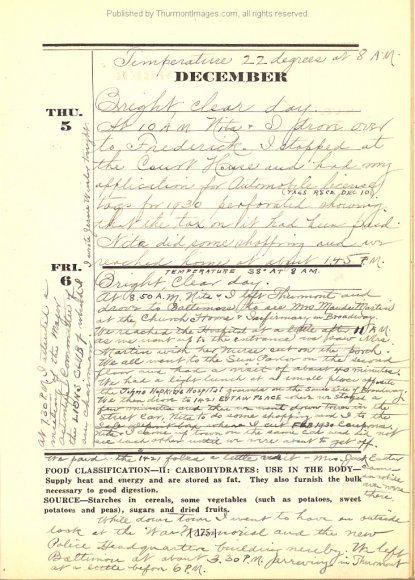 Published by ThurmontImages.com, all rights reserved.
Temperature 22 degrees at 8 A.M.
DECEMBER
THU.
5
Bright clear day.
At 10 A.M. Nita & I drove over
to Frederick. I stopped at
the Court House and had my
application for Automobile license
(TAGS RECD DEC 10)
tags for 1930 perforated showing
that the tax on it had been paid.
Nita did some shopping and we
reached home at about 1.45 P.M.
I wrote tonight
FRI.
6
TEMPERATURE 38° AT 8 AM.
Bright Clear day.
At 8.50 A.M. Nita & I left Thurmont and
drove to Baltimore to see Mrs Maude Martin
at the Church Home & Infirmary on Broadway.
We reached the Hospital at a little after 11 A.M.
as we went up to the entrance we saw Mrs
Martin with her nurse out on the porch.
We all went to the Sun Parlor on the second
floor and had a visit of about 40 minutes.
We had a light lunch at a small place opposite
the Johns Hopkins Hospital grounds on the South side of Broadway.
We then drove to 1421 EUTAW PLACE where we stopped a
few minutes and then we went down town in the
Street Car, Nita to do some shopping and I to the
Safe deposit box where I cut
Nita & I came up town on the same car and did not
see each other until we were about to get off.
At 7.30 P.M. I attended a
meeting of the
Committee of
the LIONS CLUBS of
We paid the 1421 folks a little visit - Mrs Jack Easter
came
in while
we were
there
FOOD CLASSIFICATION—II: CARBOHYDRATES: USE IN THE BODY—
Supply heat and energy and are stored as fat. They also furnish the bulk
necessary to good digestion.
SOURCE—Starches in cereals, some vegetables (such as potatoes, sweet
potatoes and peas), sugars and dried fruits.
While down town I went to have an outside
look at the War Memorial and the new
(175)
Police Headquarters building nearby. We left
Baltimore at about 3.30 P.M. arriving in Thurmont
at a little before 6 P.M.